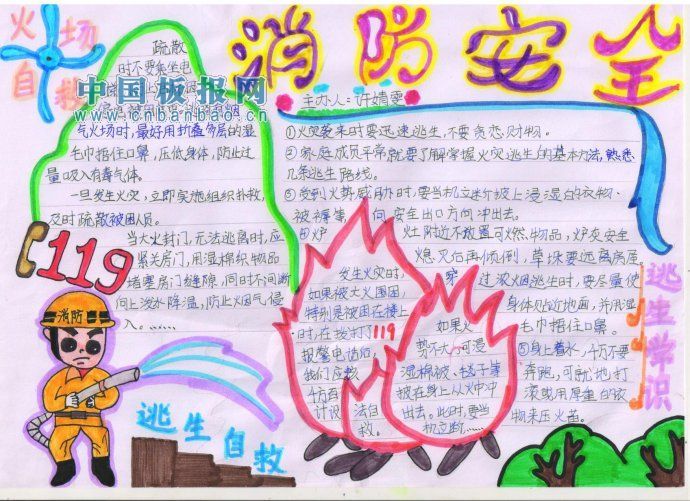 消防安全
火场
自救
中国板报网
www.cnbanbao.cn
主办人：许婧雯
疏散
时不要乘坐电
气火场时，最好用折叠多层的湿
毛巾捂住口鼻，压低身体，防止过
量吸入有毒气体。
一旦发生火灾，立即实施组织扑救，
及时疏散被困人员。
119
当大火封门，无法逃离时，应
紧关房门，用湿棉织物品
堵塞房门缝隙，同时不间断
向上泼水降温，防止烟气侵
入。……
消防
逃生自救
①火灾袭来时要迅速逃生，不要贪恋财物。
②家庭成员平常就要了解掌握火灾逃生的基本方法，熟悉
几条逃生路线。
③受到火势威胁时，要当机立断披上浸湿的衣物、
被褥等 向安全出口方向冲出去。
④炉 灶附近不放置可燃物品，炉灰安全
熄灭后再倾倒，草垛要远离房屋
穿 过浓烟逃生时，要尽量使
身体贴近地面，并用湿
毛巾捂住口鼻。
⑤身上着火，千万不要
奔跑，可就地打
滚或用厚重的衣
物来压火苗。
逃生学识
发生火灾时，
如果被大火围困，
特别是被困在楼上
时，在拨打119
报警电话后，
我们应该
千方百
计设 法自
救。
如果火
势不大，可浸
湿棉被、毯子等
披在身上从火中冲
出去。此时，要当
机立断……